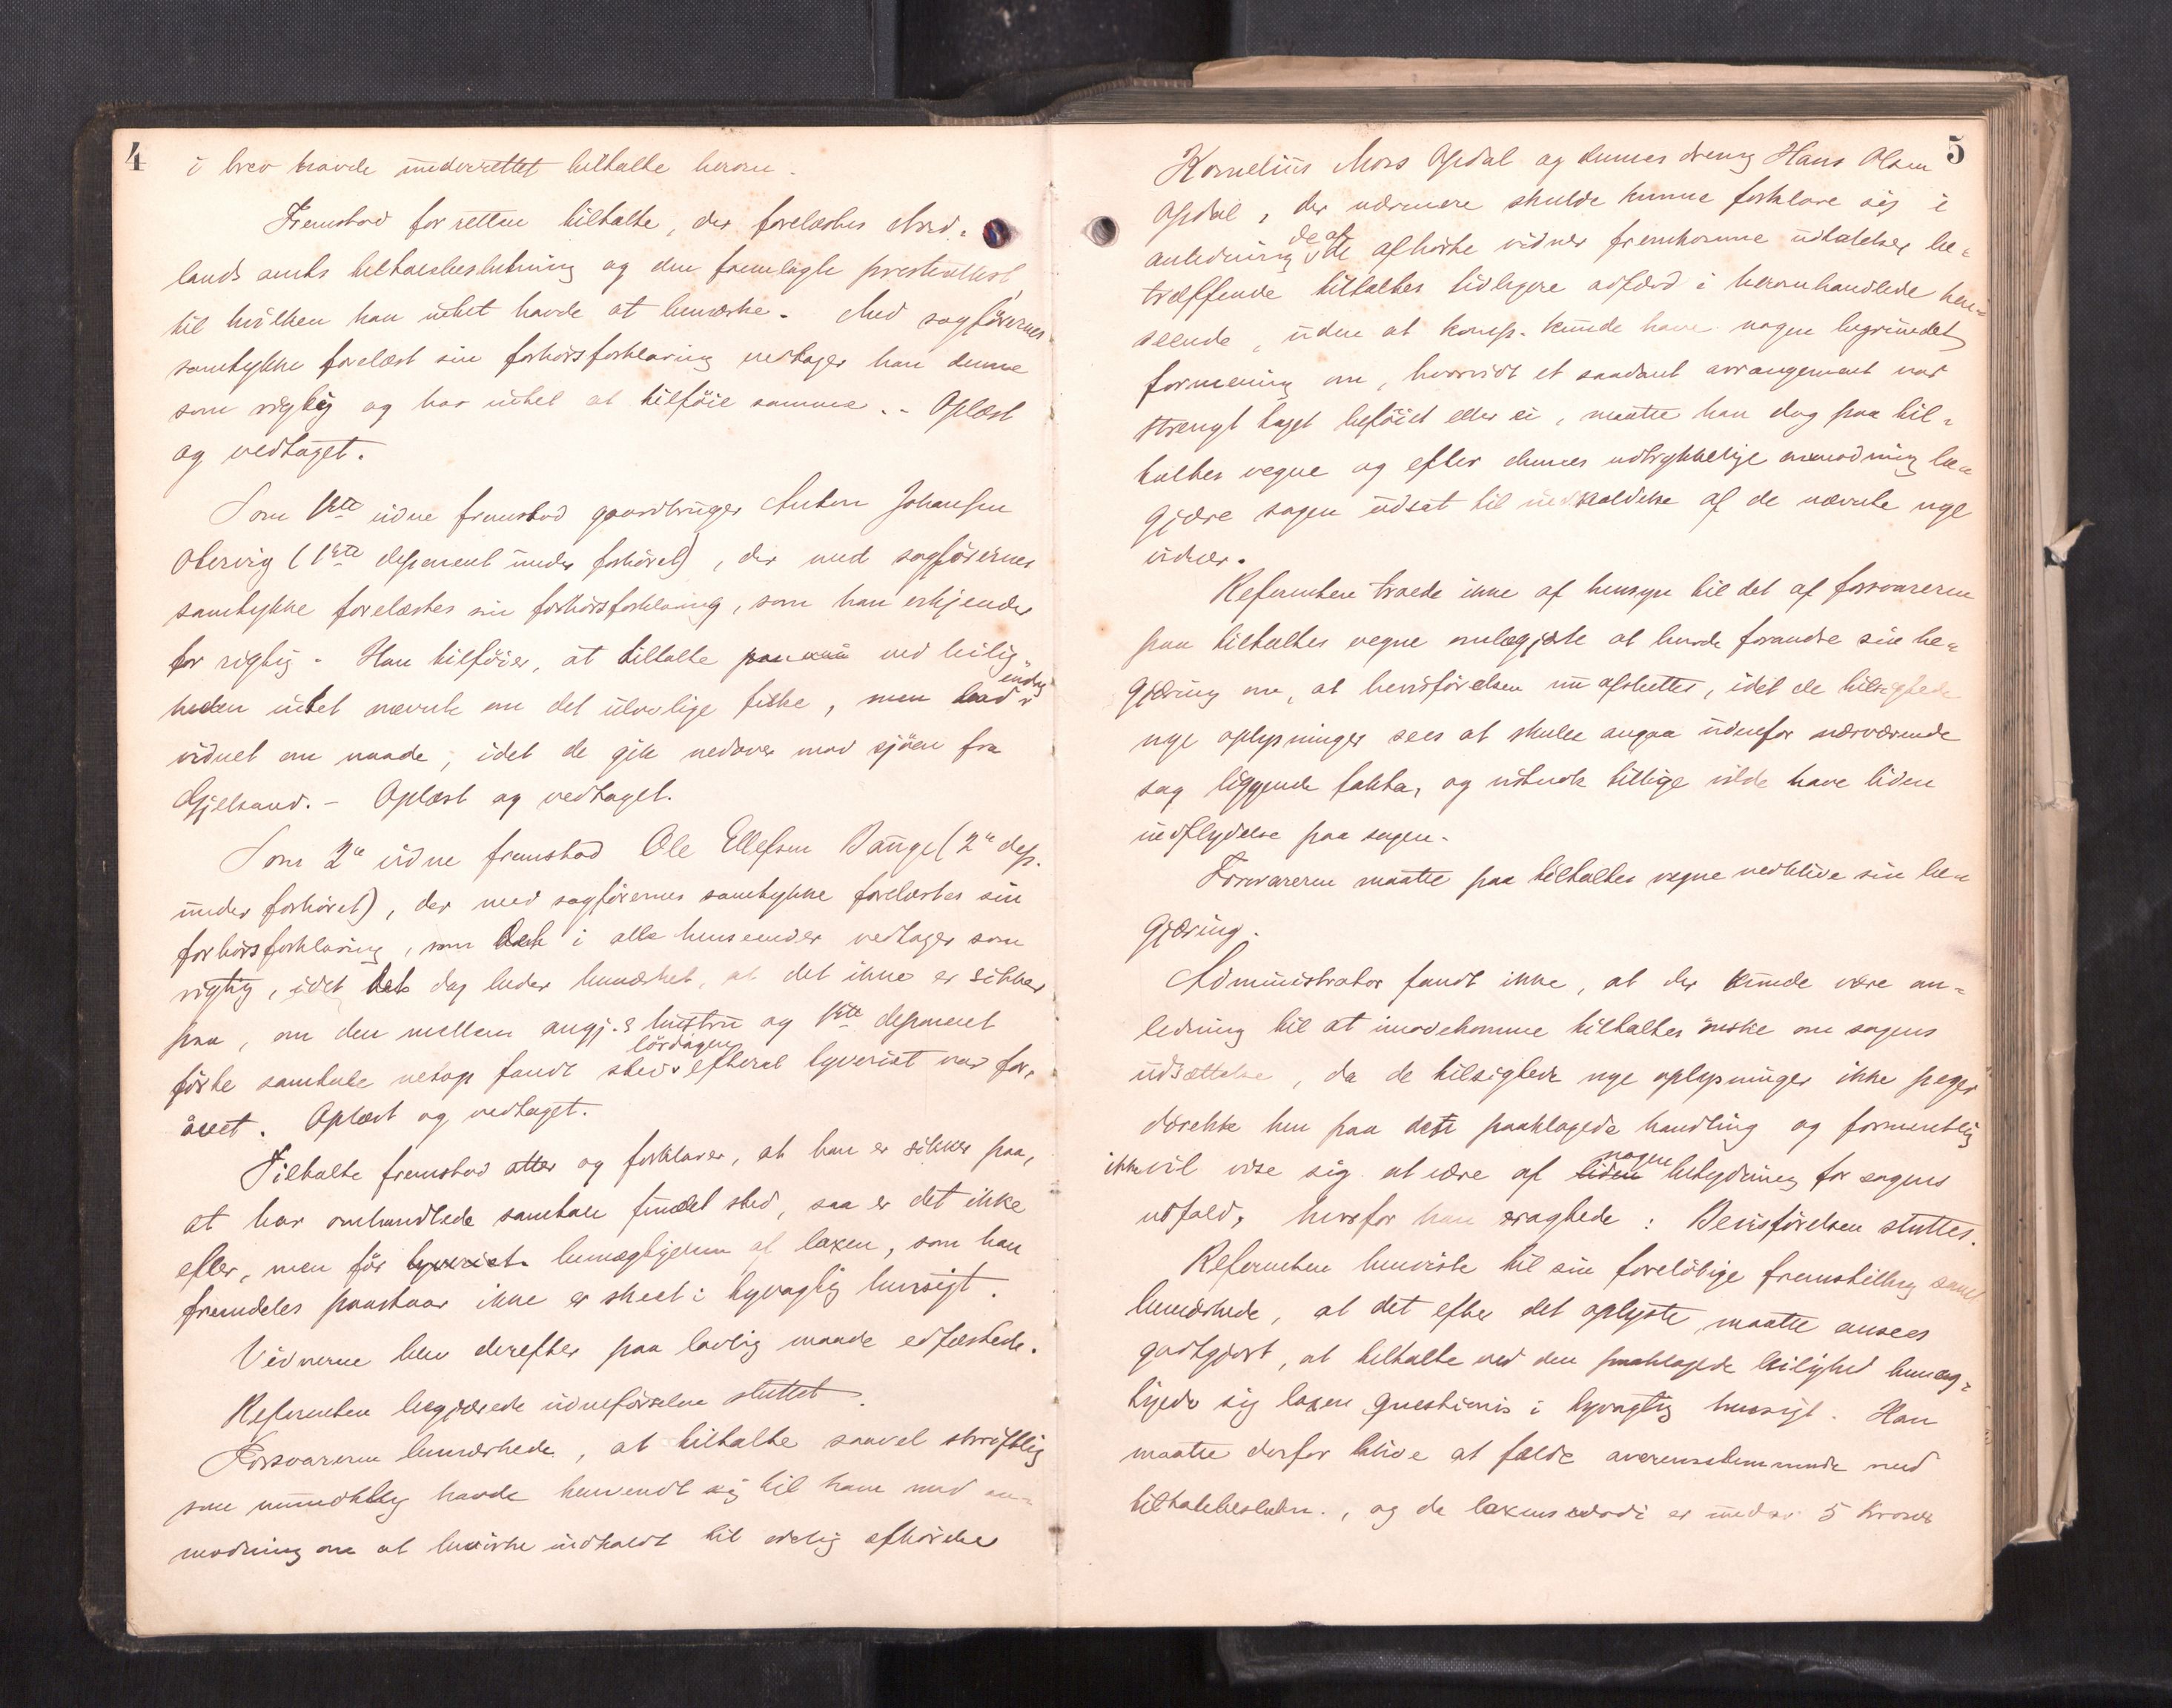 4
i brev havde underrettet tiltalte herom.
Fremstod for retten tiltalte, der forelæstes Nord-
lands amts tiltalebeslutning og den fremlagte presteattest,
til hvilken han intet havde at bemærke. Med sagførernes
samtykke forelæst sin forhørsforklaring vedtager han denne
som rigtig og har intet at tilføie samme. - Oplæst
og vedtaget.
Som 1ste vidne fremstod gaardbruger Anton Johansen
Otervig (1ste deponent under forhøret), der med sagførernes
samtykke forelæstes sin forhørsforklaring, som han erkjender
for rigtig. Han tilføier, at tiltalte ved leilig-
heden intet nævnte om det ulovlige fiske, men bad endog
vidnet om naade, idet de gik nedover mod sjøen fra
Gjelsand. - Oplæst og vedtaget.
Som 2et vidne fremstod Ole Ellefsen Bauge (2et dep.
under forhøret), der med sagførernes samtykke forelæstes sin
forhørsforklaring, som i alle henseender vedtages som
rigtig, idet dog beder bemærket, at det ikke er sikker
paa, om den mellem angj.s hustru og 1ste deponent
førte samtale netop fandt sted lördagen efterat tyveriet var for-
övet. Oplæst og vedtaget.
Tiltalte fremstod atter og forklarer, at han er sikker paa,
at har omhandlede samtale fundet sted, saa er det ikke
efter, men før tyveriet bemægtigelsen af laxen, som han
fremdeles paastaar ikke er skeet i tyvagtig hensigt.
Vidnerne blev derefter paa lovlig maade edfæstede.
Referenten begjærede vidneførselen sluttet.
Forsvareren bemærkede, at tiltalte saavel skriftlig
som mundtlig havde henvendt sig til ham med an-
modning om at bevirke indkaldt til edelig afhørelse
5
Kornelius Mors Opdal og dennes dreng Hans Olsen
Opdal, der nærmere skulde kunne forklare sig i
anledning de af de afhørte vidner fremkomne udtalelser be-
træffende tiltaltes tidligere adfærd i heromhandlede hen-
seende, uden at komp. kunde have nogen begrundet
formening om, hvorvidt et saadant arrangement var
strengt taget beføiet eller ei, maatte han dog paa til-
taltes vegne og efter dennes udtrykkelige anmodning be-
gjære sagen udsat til indkaldelse af de nævnte nye
vidner.
Referenten troede ikke af hensyn til det af forsvareren
paa tiltaltes vegne anbragte at burde forandre sin be-
gjæring om, at bevisførelsen nu afsluttes, idet de tilsigtede
nye oplysninger sees at skulle angaa udenfor nærværende
sag liggende fakta, og vistnok tillige vilde have liden
indflydelse paa sagen.
Forsvareren maatte paa tiltaltes vegne vedblive sin be-
gjæring.
Administrator fandt ikke, at der kunde være an-
ledning til at imødekomme tiltaltes ønske om sagens
udsættelse, da de tilsigtede nye oplysninger ikke peger
direkte hen paa den paaklagede handling og formentlig
ikke vil vise sig at være af liden nogen betydning for sagens
udfald, hvorfor han eragtede: Bevisførelsen sluttes.
Referenten henviste til sin foreløbige fremstilling samt
bemærkede, at det efter det oplyste maatte ansees
godtgjort, at tiltalte ved den paaklagede leilighed bemæg-
tigede sig laxen questionis i tyvagtig hensigt. Han
maatte derfor blive at fælde overensstemmende med
tiltalebeslutn., og da laxens værdi er under 5 kroner